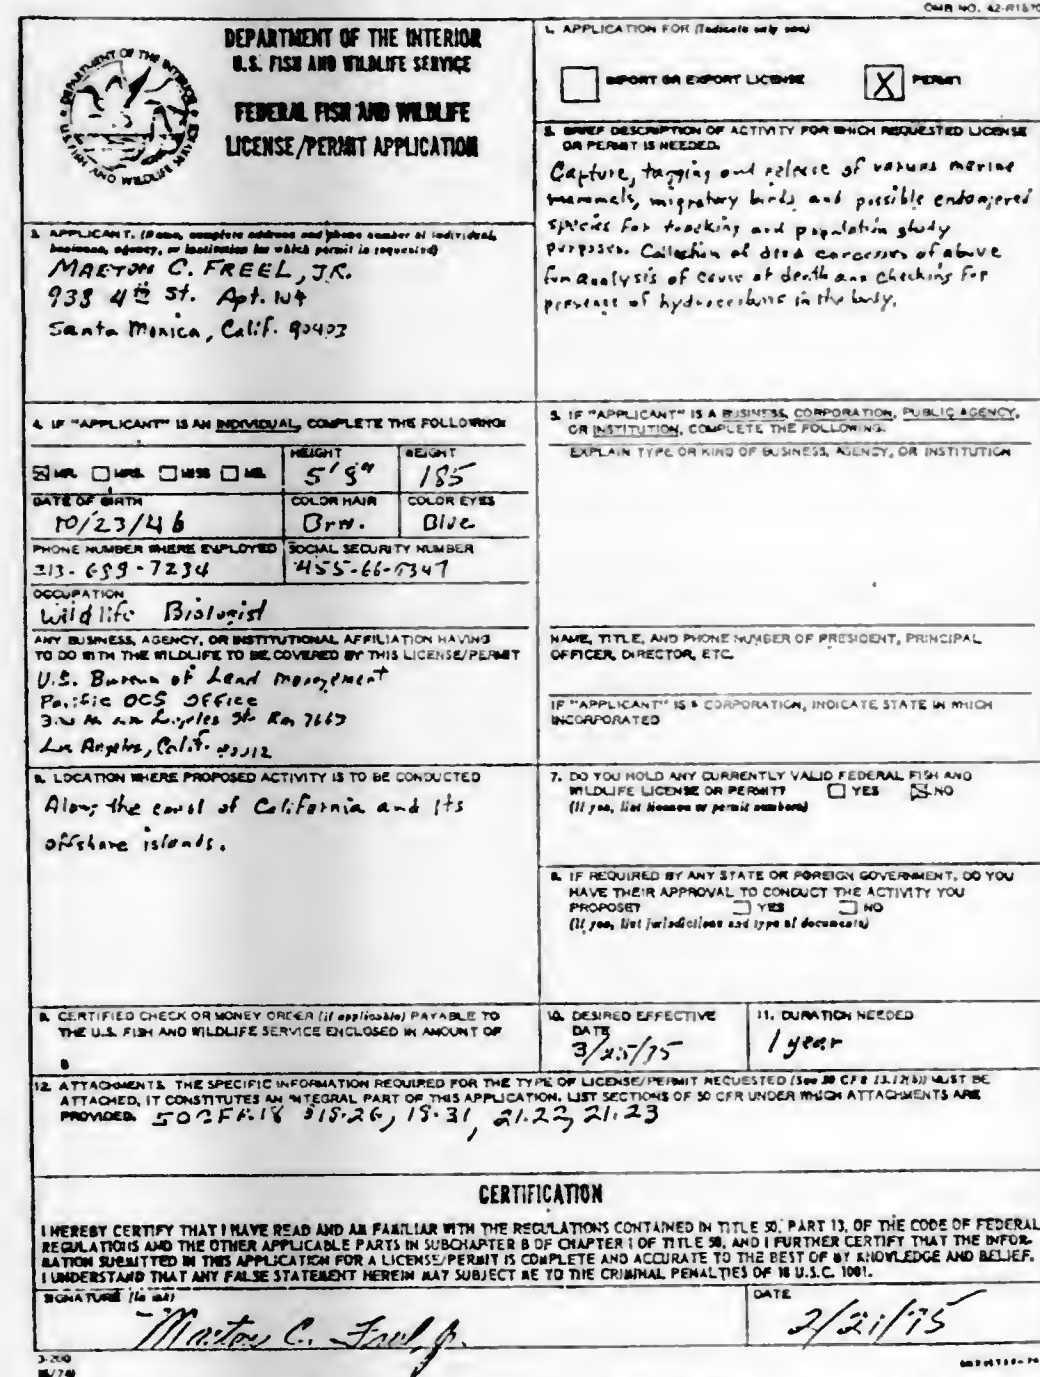 OMB NO. 42-R1670
DEPARTMENT OF THE INTERIOR
U.S. FISH AND WILDLIFE SERVICE
FEDERAL FISH AND WILDLIFE
LICENSE/PERMIT APPLICATION
DEPARTMENT OF THE INTERIOR
U.S. FISH AND WILDLIFE SERVICE
1. APPLICATION FOR (Indicate only one)
IMPORT OR EXPORT LICENSE
X PERMIT
2. BRIEF DESCRIPTION OF ACTIVITY FOR WHICH REQUESTED LICENSE
OR PERMIT IS NEEDED.
Capture, tagging and release of various marine
mammals, migratory birds and possible endangered
species for tracking and population study
purposes. Collection of dead carcasses of above
for analysis of cause of death and checking for
presence of hydrocarbons in the body.
3. APPLICANT. (Name, complete address and phone number of individual,
business, agency, or institution for which permit is requested)
MAETON C. FREEL, JR.
938 4th St. Apt.
Santa Monica, Calif. 90403
4. IF "APPLICANT" IS AN INDIVIDUAL, COMPLETE THE FOLLOWING:
MR. MRS. MISS MS.
HEIGHT
5'8"
WEIGHT
185
DATE OF BIRTH
10/23/46
COLOR HAIR
Brn.
COLOR EYES
Blue
PHONE NUMBER WHERE EMPLOYED
213-
-7234
SOCIAL SECURITY NUMBER
OCCUPATION
Wildlife Biologist
ANY BUSINESS, AGENCY, OR INSTITUTIONAL AFFILIATION HAVING
TO DO WITH THE WILDLIFE TO BE COVERED BY THIS LICENSE/PERMIT
U.S. Bureau of Land Management
Pacific OCS Office
Los Angeles St. Rm 7663
Los Angeles, Calif. 90012
5. IF "APPLICANT" IS A BUSINESS, CORPORATION, PUBLIC AGENCY,
OR INSTITUTION, COMPLETE THE FOLLOWING.
EXPLAIN TYPE OR KIND OF BUSINESS, AGENCY, OR INSTITUTION
NAME, TITLE, AND PHONE NUMBER OF PRESIDENT, PRINCIPAL
OFFICER, DIRECTOR, ETC.
IF "APPLICANT" IS A CORPORATION, INDICATE STATE IN WHICH
INCORPORATED
6. LOCATION WHERE PROPOSED ACTIVITY IS TO BE CONDUCTED
Along the coast of California and its
offshore islands.
7. DO YOU HOLD ANY CURRENTLY VALID FEDERAL FISH AND
WILDLIFE LICENSE OR PERMIT? YES NO
(If yes, list license or permit numbers)
8. IF REQUIRED BY ANY STATE OR FOREIGN GOVERNMENT, DO YOU
HAVE THEIR APPROVAL TO CONDUCT THE ACTIVITY YOU
PROPOSE? YES NO
(If yes, list jurisdictions and type of documents)
9. CERTIFIED CHECK OR MONEY ORDER (if applicable) PAYABLE TO
THE U.S. FISH AND WILDLIFE SERVICE ENCLOSED IN AMOUNT OF
$
10. DESIRED EFFECTIVE
DATE
3/25/75
11. DURATION NEEDED
1 year
12. ATTACHMENTS. THE SPECIFIC INFORMATION REQUIRED FOR THE TYPE OF LICENSE/PERMIT REQUESTED (See 50 CFR 13.12(b)) MUST BE
ATTACHED, IT CONSTITUTES AN INTEGRAL PART OF THIS APPLICATION. LIST SECTIONS OF 50 CFR UNDER WHICH ATTACHMENTS ARE
PROVIDED. 50 CFR 18 18.26, 18.31, 21.22, 21.23
CERTIFICATION
I HEREBY CERTIFY THAT I HAVE READ AND AM FAMILIAR WITH THE REGULATIONS CONTAINED IN TITLE 50, PART 13, OF THE CODE OF FEDERAL
REGULATIONS AND THE OTHER APPLICABLE PARTS IN SUBCHAPTER B OF CHAPTER I OF TITLE 50, AND I FURTHER CERTIFY THAT THE INFOR-
MATION SUBMITTED IN THIS APPLICATION FOR A LICENSE/PERMIT IS COMPLETE AND ACCURATE TO THE BEST OF MY KNOWLEDGE AND BELIEF.
I UNDERSTAND THAT ANY FALSE STATEMENT HEREIN MAY SUBJECT ME TO THE CRIMINAL PENALTIES OF 18 U.S.C. 1001.
SIGNATURE (In ink)
Maeton C. Freel, Jr.
DATE
2/21/75
3-200
(6/74)